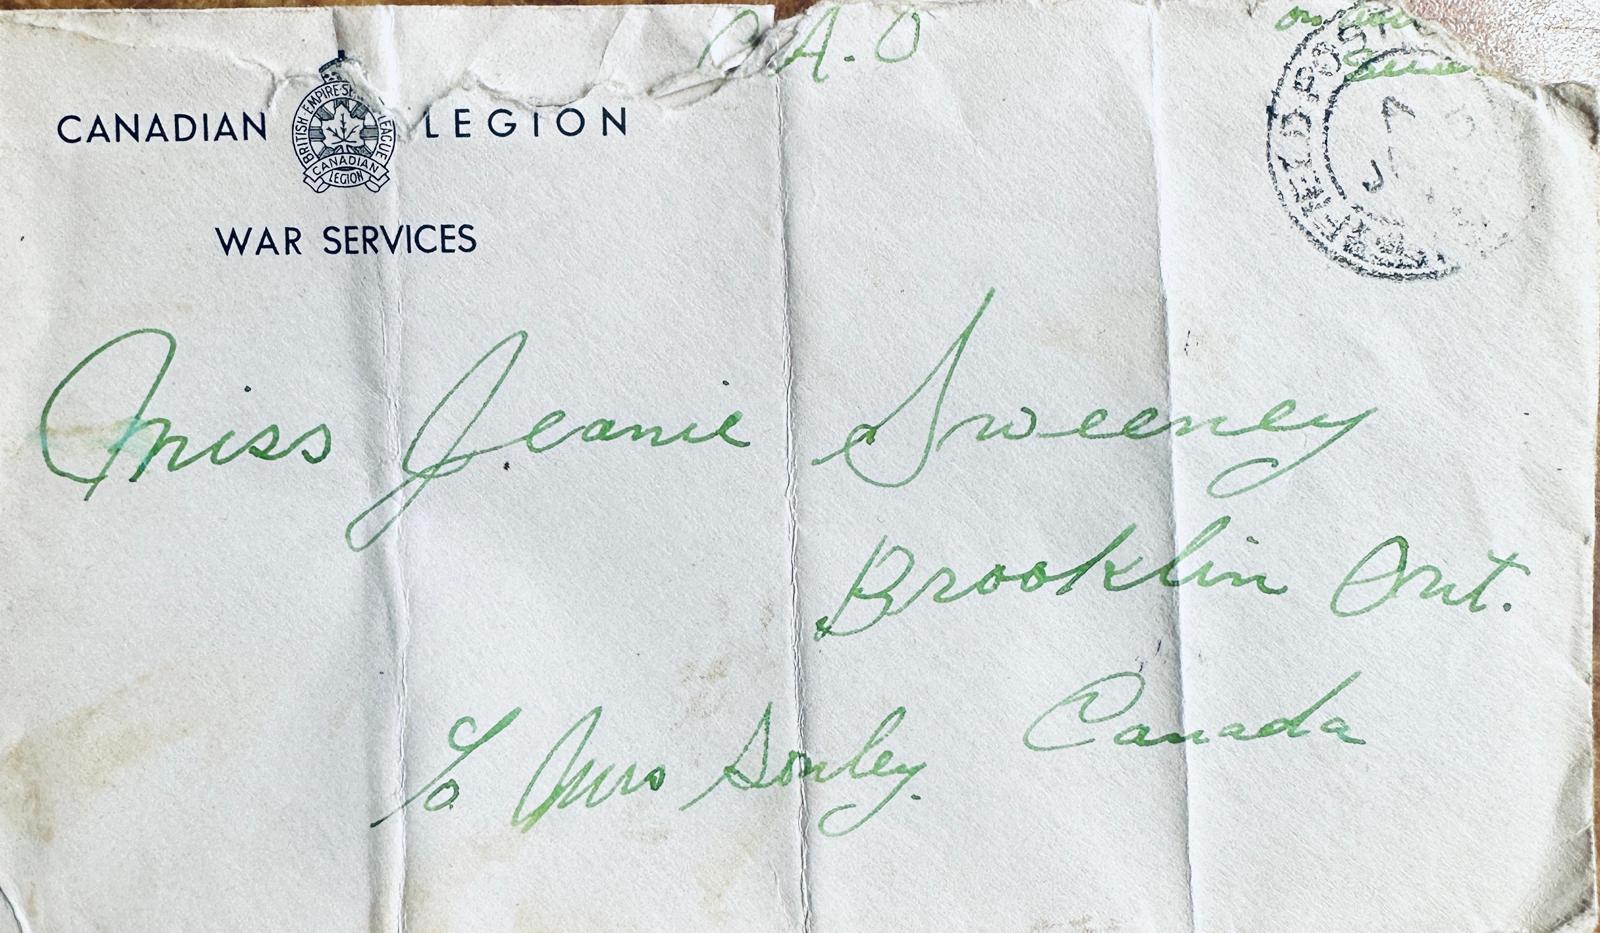 C.A.O
on active
Service
CANADIAN LEGION
BRITISH EMPIRE SERVICE LEAGUE
CANADIAN
LEGION
WAR SERVICES
FIELD POST
JA
Miss Jeanie Sweeney
Brooklin Ont.
Canada
c/o Mrs Sonley.